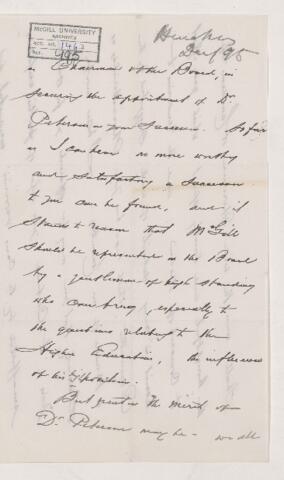 McGILL UNIVERSITY
ARCHIVES
ACC. NO. 1463
REF.
Dec/95
as Chairman of the Board, in
securing the appointment of Dr.
Peterson as your Successor. So far
as I can hear no more worthy
and satisfactory a Successor
to you can be found, and it
Stands to reason that McGill
should be represented on the Board
by a gentleman of high standing
who can bring, especially to
the questions relating to the
Higher Education, the influence
of his position.
But great as the merit of
Dr. Peterson may be - we all